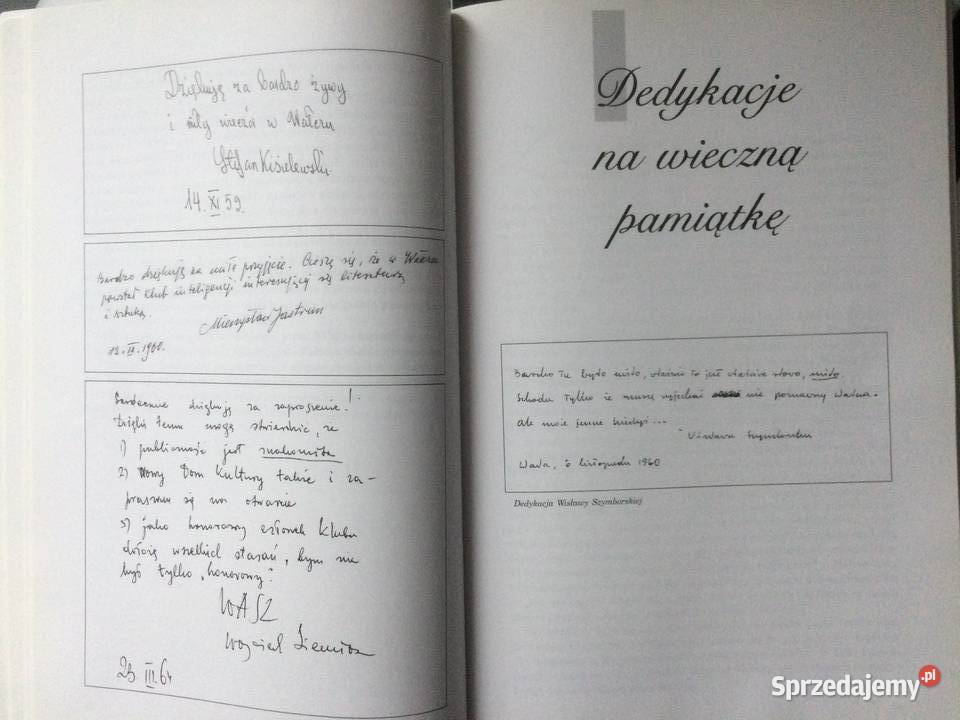 Dziękuję za bardzo żywy
i miły wieczór w Wałczu
Stefan Kisielewski
14. XI 59.
Bardzo dziękuję za miłe przyjęcie. Cieszę się, że w Wałczu
powstał klub inteligencji interesującej się literaturą
i sztuką.
Mieczysław Jastrun
12. IX. 1960.
Serdecznie dziękuję za zaproszenie!
Dzięki temu mogę stwierdzić, że
1) publiczność jest znakomita
2) Nowy Dom Kultury także i za-
praszam się na otwarcie
3) jako honorowy członek klubu
dołożę wszelkich starań, bym nie
był tylko „honorowy".
WASZ
Wojciech Siemion
23 III. 64
Dedykacje
na wieczną
pamiątkę
Bardzo tu było miło, właśnie to jest właściwe słowo, miło
Szkoda tylko że muszę wyjechać nie poznawszy Wałcza.
Ale może jeszcze kiedyś...
Wisława Szymborska
Wałcz, listopada 1960
Dedykacja Wisławy Szymborskiej
Sprzedajemy.pl